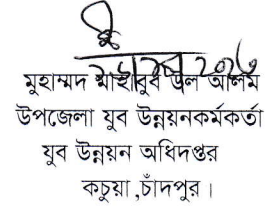 মুহাম্মদ মাহাবুব উল আলম
উপজেলা যুব উন্নয়নকর্মকর্তা
যুব উন্নয়ন অধিদপ্তর
কচুয়া ,চাঁদপুর।